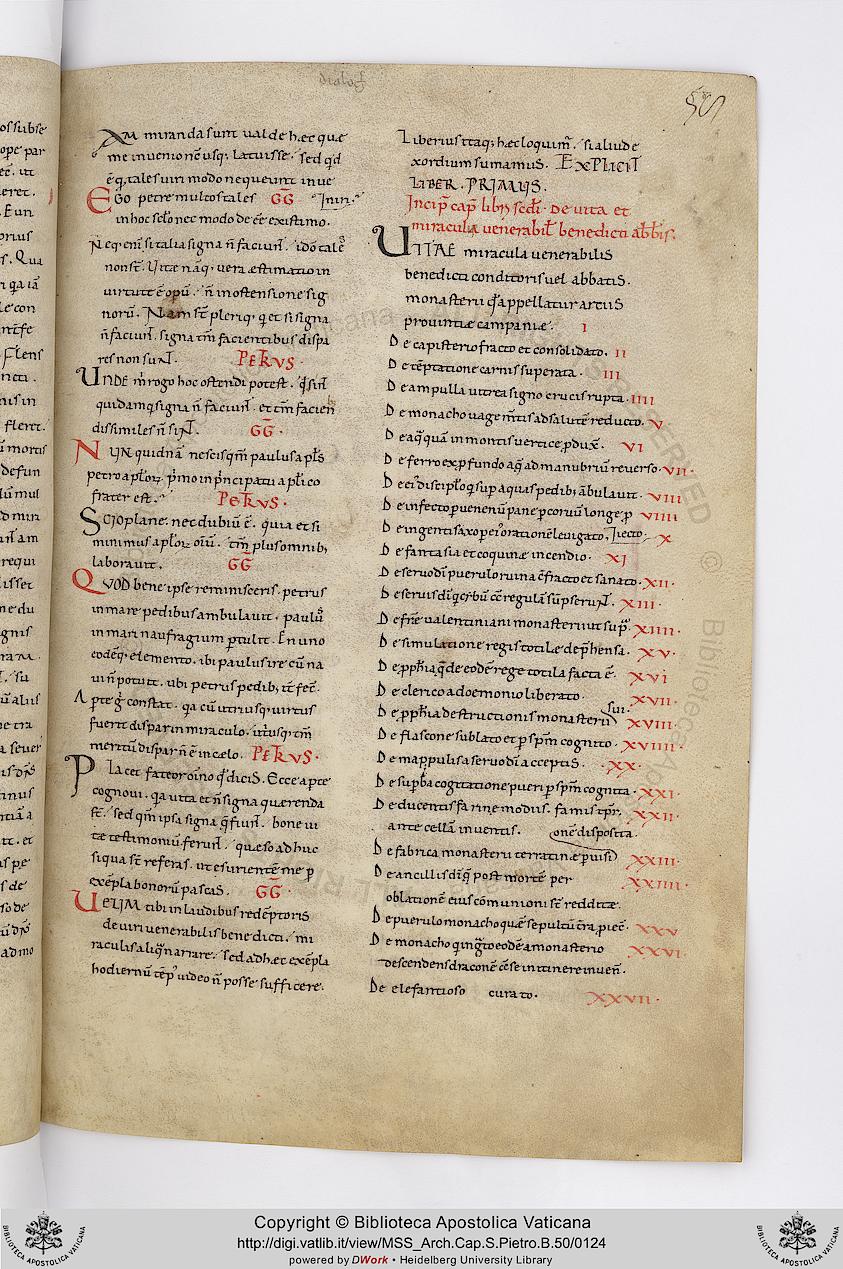 dialog
50
Am miranda sunt valde hæc quæ
me invenio nc̄ usq; latuisse. sed qd
ē q, tales viri modo nequeunt inve
Ego petre multos tales GḠ niri.
in hoc sclo nec modo deēē existimo.
Neq; eni si talia signa n̄ faciunt. ido tales
non st̄. Vitæ nāq; vera æstimatio in
virtute ē opū. n̄ in ostensione sig
norū. Nam st̄ pleriq; qi et si signa
n̄ faciunt. signa tm̄ facientibus dispa
res non sunt. PETRVS.
Unde m̄ rogo hoc ostendi potest. qd sint
quidam qi signa n̄ faciunt. et tm̄ facien
dissimiles n̄ sint. GḠ.
Nūquidnā nescis qm̄ paulus apls
petro aplor; primo in principatu aplico
frater est. PETRVS.
Scio plane. nec dubiū ē. quia et si
minimus aplor; oiū. tm̄ plus omnib;
laboravit. GḠ
Quod bene ipse reminisceris. petrus
in mare pedibus ambulavit. paulus
in mari naufragium ptulit. En uno
eodēq; elemento. ibi paulus ire cū na
vi n̄ potuit. ubi petrus pedib; it̄ fec̄.
Apte g̊ constat. qa cū utriusq; virtus
fuerit dispar in miraculo. utriusq; tm̄
meritū dispar n̄ ē in cælo. PETRVS.
Placet fateor oīno qd dicis. Ecce apte
cognovi. qa vita et n̄ signa quærenda
st̄. sed qm̄ ipsa signa q̄ fiunt. bonę vi
tæ testimoniū ferunt. quæso adhuc
siqua st̄ referas. ut esurientē me p
exēpla bonorū pascas. GḠ.
Velim tibi in laudibus redēptoris
de viri venerabilis benedicti. mi
raculis aliqd narrare. sed ad hæc exēpla
hodiernū tēps video n̄ posse sufficere.
Liberius itaq; hæc loquim̄. si aliud e
xordium sumamus. EXPLICIT
LIBER. PRIMUS.
Incip̄ cap̄ libri scdi. De vita et
miracula venerabil benedicti abbis.
Vitae miracula venerabilis
benedicti conditoris vel abbatis.
monasterii qd appellatur arcius
provintiæ campaniæ. I
De capisterio fracto et consolidato. II
De tēptatione carnis superata. III
De ampulla vitrea signo crucis rupta. IIII
De monacho vagę mtis ad salutē reducto. V
De aq̄ quā in montis vertice pdux̄. VI
De ferro ex pfundo aqę ad manubriū reverso. VII.
De ei discipl̄o qi sup aquas pedib; ābulavit. VIII
De infecto p venenū pane p corvū longe p VIIII
De ingenti saxo p ei orationē levigato. Iiecto X
De fantasia et coquinæ incendio. XI
De servo di puerulo ruina cfracto et sanato. XII.
De servis di qi cibū cc̄ regulā sūpserunt. XIII.
De frē valentiniani monasterii ut sup̄. XIIII.
De simulatione regis totilæ dephensa. XV.
De pphīa q̄ de eodē rege totila facta ē. XVI
De clerico a doemonio liberato. XVII.
sui.
De pphīa destructionis monasterii XVIII.
De flascone sublato et p spm̄ cognito. XVIIII.
De mappulis a servo di acceptis. XX.
De supba cogitatione pueri p spm̄ cognita. XXI.
De ducentis farinę modiis. famis tpr. XXII.
ante cellā inventis. onē disposita.
De fabrica monasterii terratinæ p visi XXIII.
De ancillis di q post mortē per XXIIII.
oblationē eius cōmunioni st̄ redditæ.
De puerulo monacho quē sepultū tra piec̄. XXV
De monacho qi ingto eodē a monasterio XXVI.
descendens draconē c̄ se in itinere invēn.
De elefantioso curato. XXVII.
Copyright © Biblioteca Apostolica Vaticana
http://digi.vatlib.it/view/MSS_Arch.Cap.S.Pietro.B.50/0124
powered by DWork • Heidelberg University Library
BIBLIOTECA APOSTOLICA VATICANA
BIBLIOTECA APOSTOLICA VATICANA